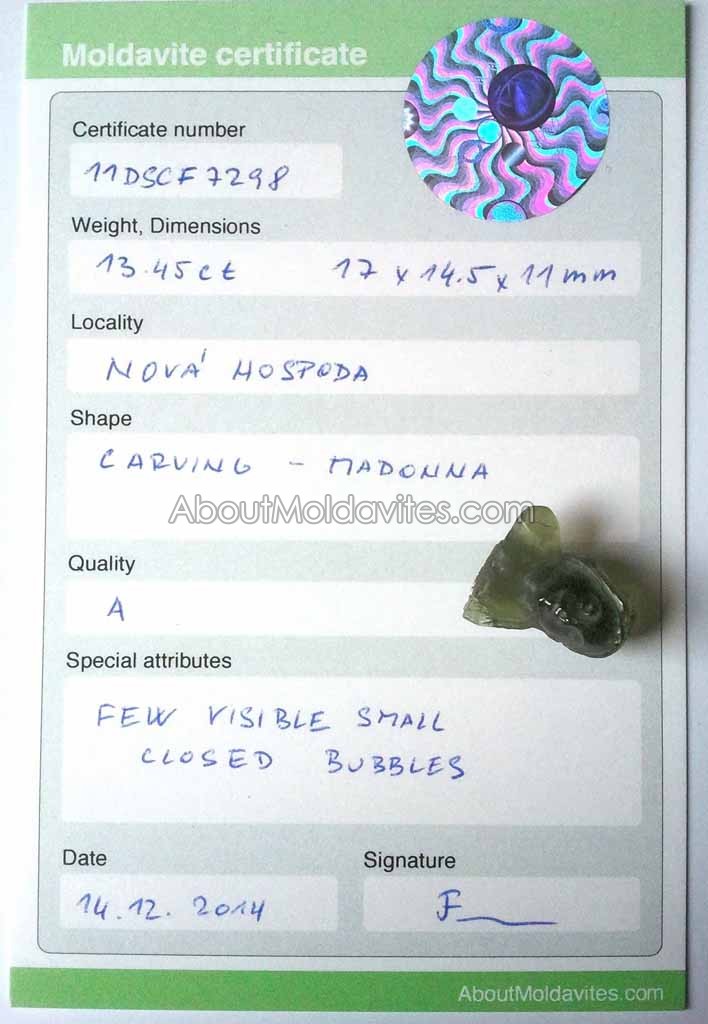 Moldavite certificate
Certificate number
11DSCF7298
Weight, Dimensions
13.45ct 17 x 14.5 x 11mm
Locality
NOVÁ HOSPODA
Shape
CARVING - MADONNA
AboutMoldavites.com
Quality
A
Special attributes
FEW VISIBLE SMALL
CLOSED BUBBLES
Date
Signature
14.12. 2014
F
AboutMoldavites.com